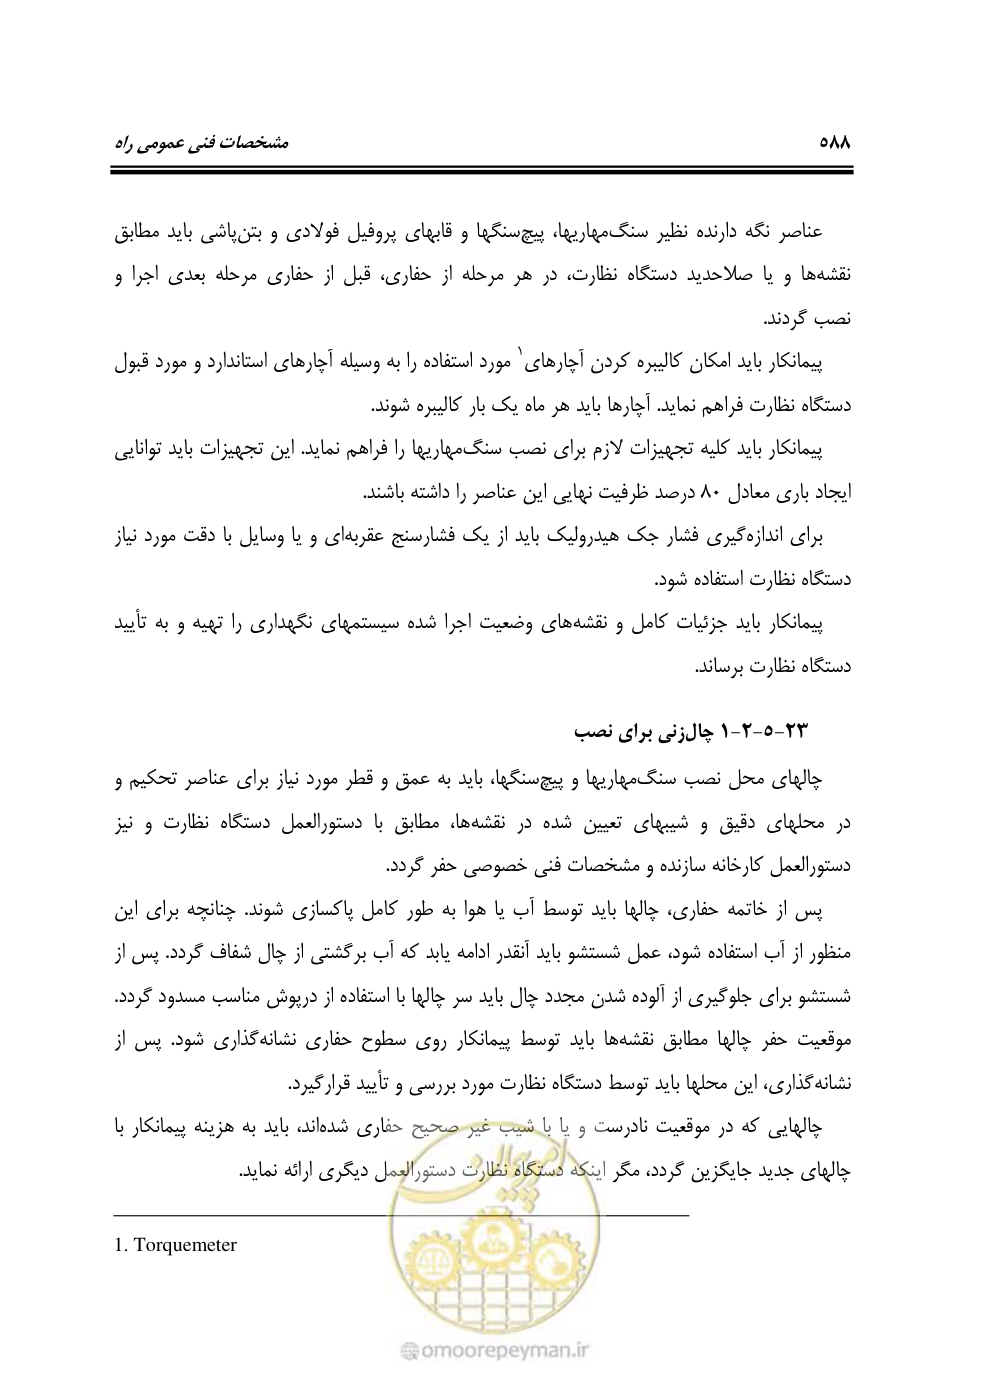 ۵۸۸ مشخصات فنی عمومی راه
عناصر نگه دارنده نظیر سنگ‌مهاریها، پیچ‌سنگها و قابهای پروفیل فولادی و بتن‌پاشی باید مطابق
نقشه‌ها و یا صلاحدید دستگاه نظارت، در هر مرحله از حفاری، قبل از حفاری مرحله بعدی اجرا و
نصب گردند.
پیمانکار باید امکان کالیبره کردن آچارهای۱ مورد استفاده را به وسیله آچارهای استاندارد و مورد قبول
دستگاه نظارت فراهم نماید. آچارها باید هر ماه یک بار کالیبره شوند.
پیمانکار باید کلیه تجهیزات لازم برای نصب سنگ‌مهاریها را فراهم نماید. این تجهیزات باید توانایی
ایجاد باری معادل ۸۰ درصد ظرفیت نهایی این عناصر را داشته باشند.
برای اندازه‌گیری فشار جک هیدرولیک باید از یک فشارسنج عقربه‌ای و یا وسایل با دقت مورد نیاز
دستگاه نظارت استفاده شود.
پیمانکار باید جزئیات کامل و نقشه‌های وضعیت اجرا شده سیستمهای نگهداری را تهیه و به تأیید
دستگاه نظارت برساند.
۲۳-۵-۲-۱ چال‌زنی برای نصب
چالهای محل نصب سنگ‌مهاریها و پیچ‌سنگها، باید به عمق و قطر مورد نیاز برای عناصر تحکیم و
در محلهای دقیق و شیبهای تعیین شده در نقشه‌ها، مطابق با دستورالعمل دستگاه نظارت و نیز
دستورالعمل کارخانه سازنده و مشخصات فنی خصوصی حفر گردد.
پس از خاتمه حفاری، چالها باید توسط آب یا هوا به طور کامل پاکسازی شوند. چنانچه برای این
منظور از آب استفاده شود، عمل شستشو باید آنقدر ادامه یابد که آب برگشتی از چال شفاف گردد. پس از
شستشو برای جلوگیری از آلوده شدن مجدد چال باید سر چالها با استفاده از درپوش مناسب مسدود گردد.
موقعیت حفر چالها مطابق نقشه‌ها باید توسط پیمانکار روی سطوح حفاری نشانه‌گذاری شود. پس از
نشانه‌گذاری، این محلها باید توسط دستگاه نظارت مورد بررسی و تأیید قرارگیرد.
چالهایی که در موقعیت نادرست و یا با شیب غیر صحیح حفاری شده‌اند، باید به هزینه پیمانکار با
چالهای جدید جایگزین گردد، مگر اینکه دستگاه نظارت دستورالعمل دیگری ارائه نماید.
1. Torquemeter
امور پیمان
omoorepeyman.ir